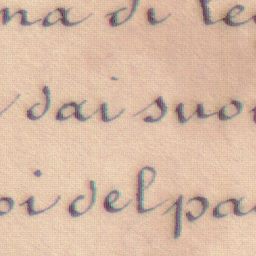 na di le
dai suoi
oi del pa